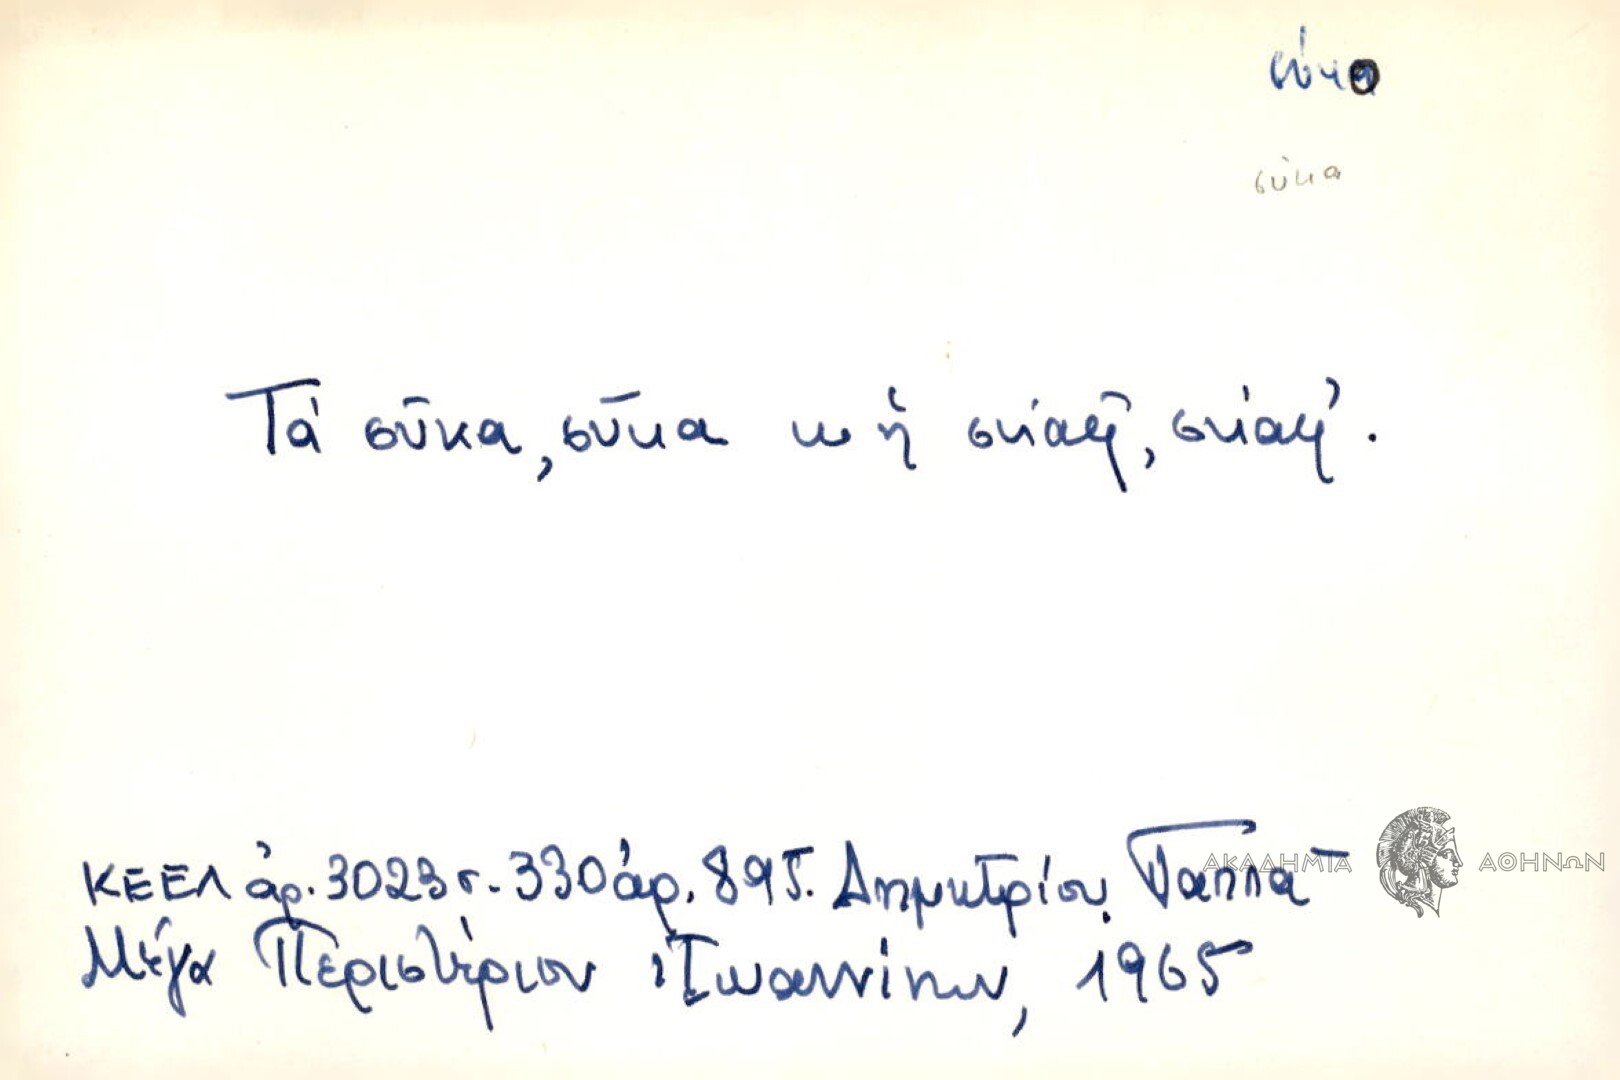 σύκο
σύκα
Τά σῦκα, σῦκα κ' ἡ σκάφη, σκάφη.
ΚΕΕΛ ἀρ. 3023 σ. 330 ἀρ. 895. Δημητρίου Παππᾶ
Μέγα Περιστέριον Ἰωαννίνων, 1965
ΑΚΑΔΗΜΙΑ ΑΘΗΝΩΝ